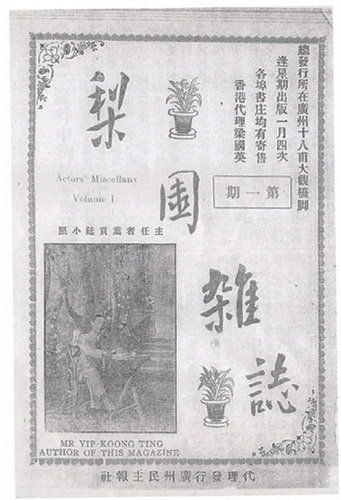 總發行所在廣州十八甫大觀橋脚
逢星期出版一月四次
各埠書庄均有寄售
香港代理梁國英
第一期
梨園雜誌
Actors' Miscellany
Volume I.
主任者葉貢廷小照
MR YIP KOONG TING
AUTHOR OF THIS MAGAZINE
代理發行廣州民主報社